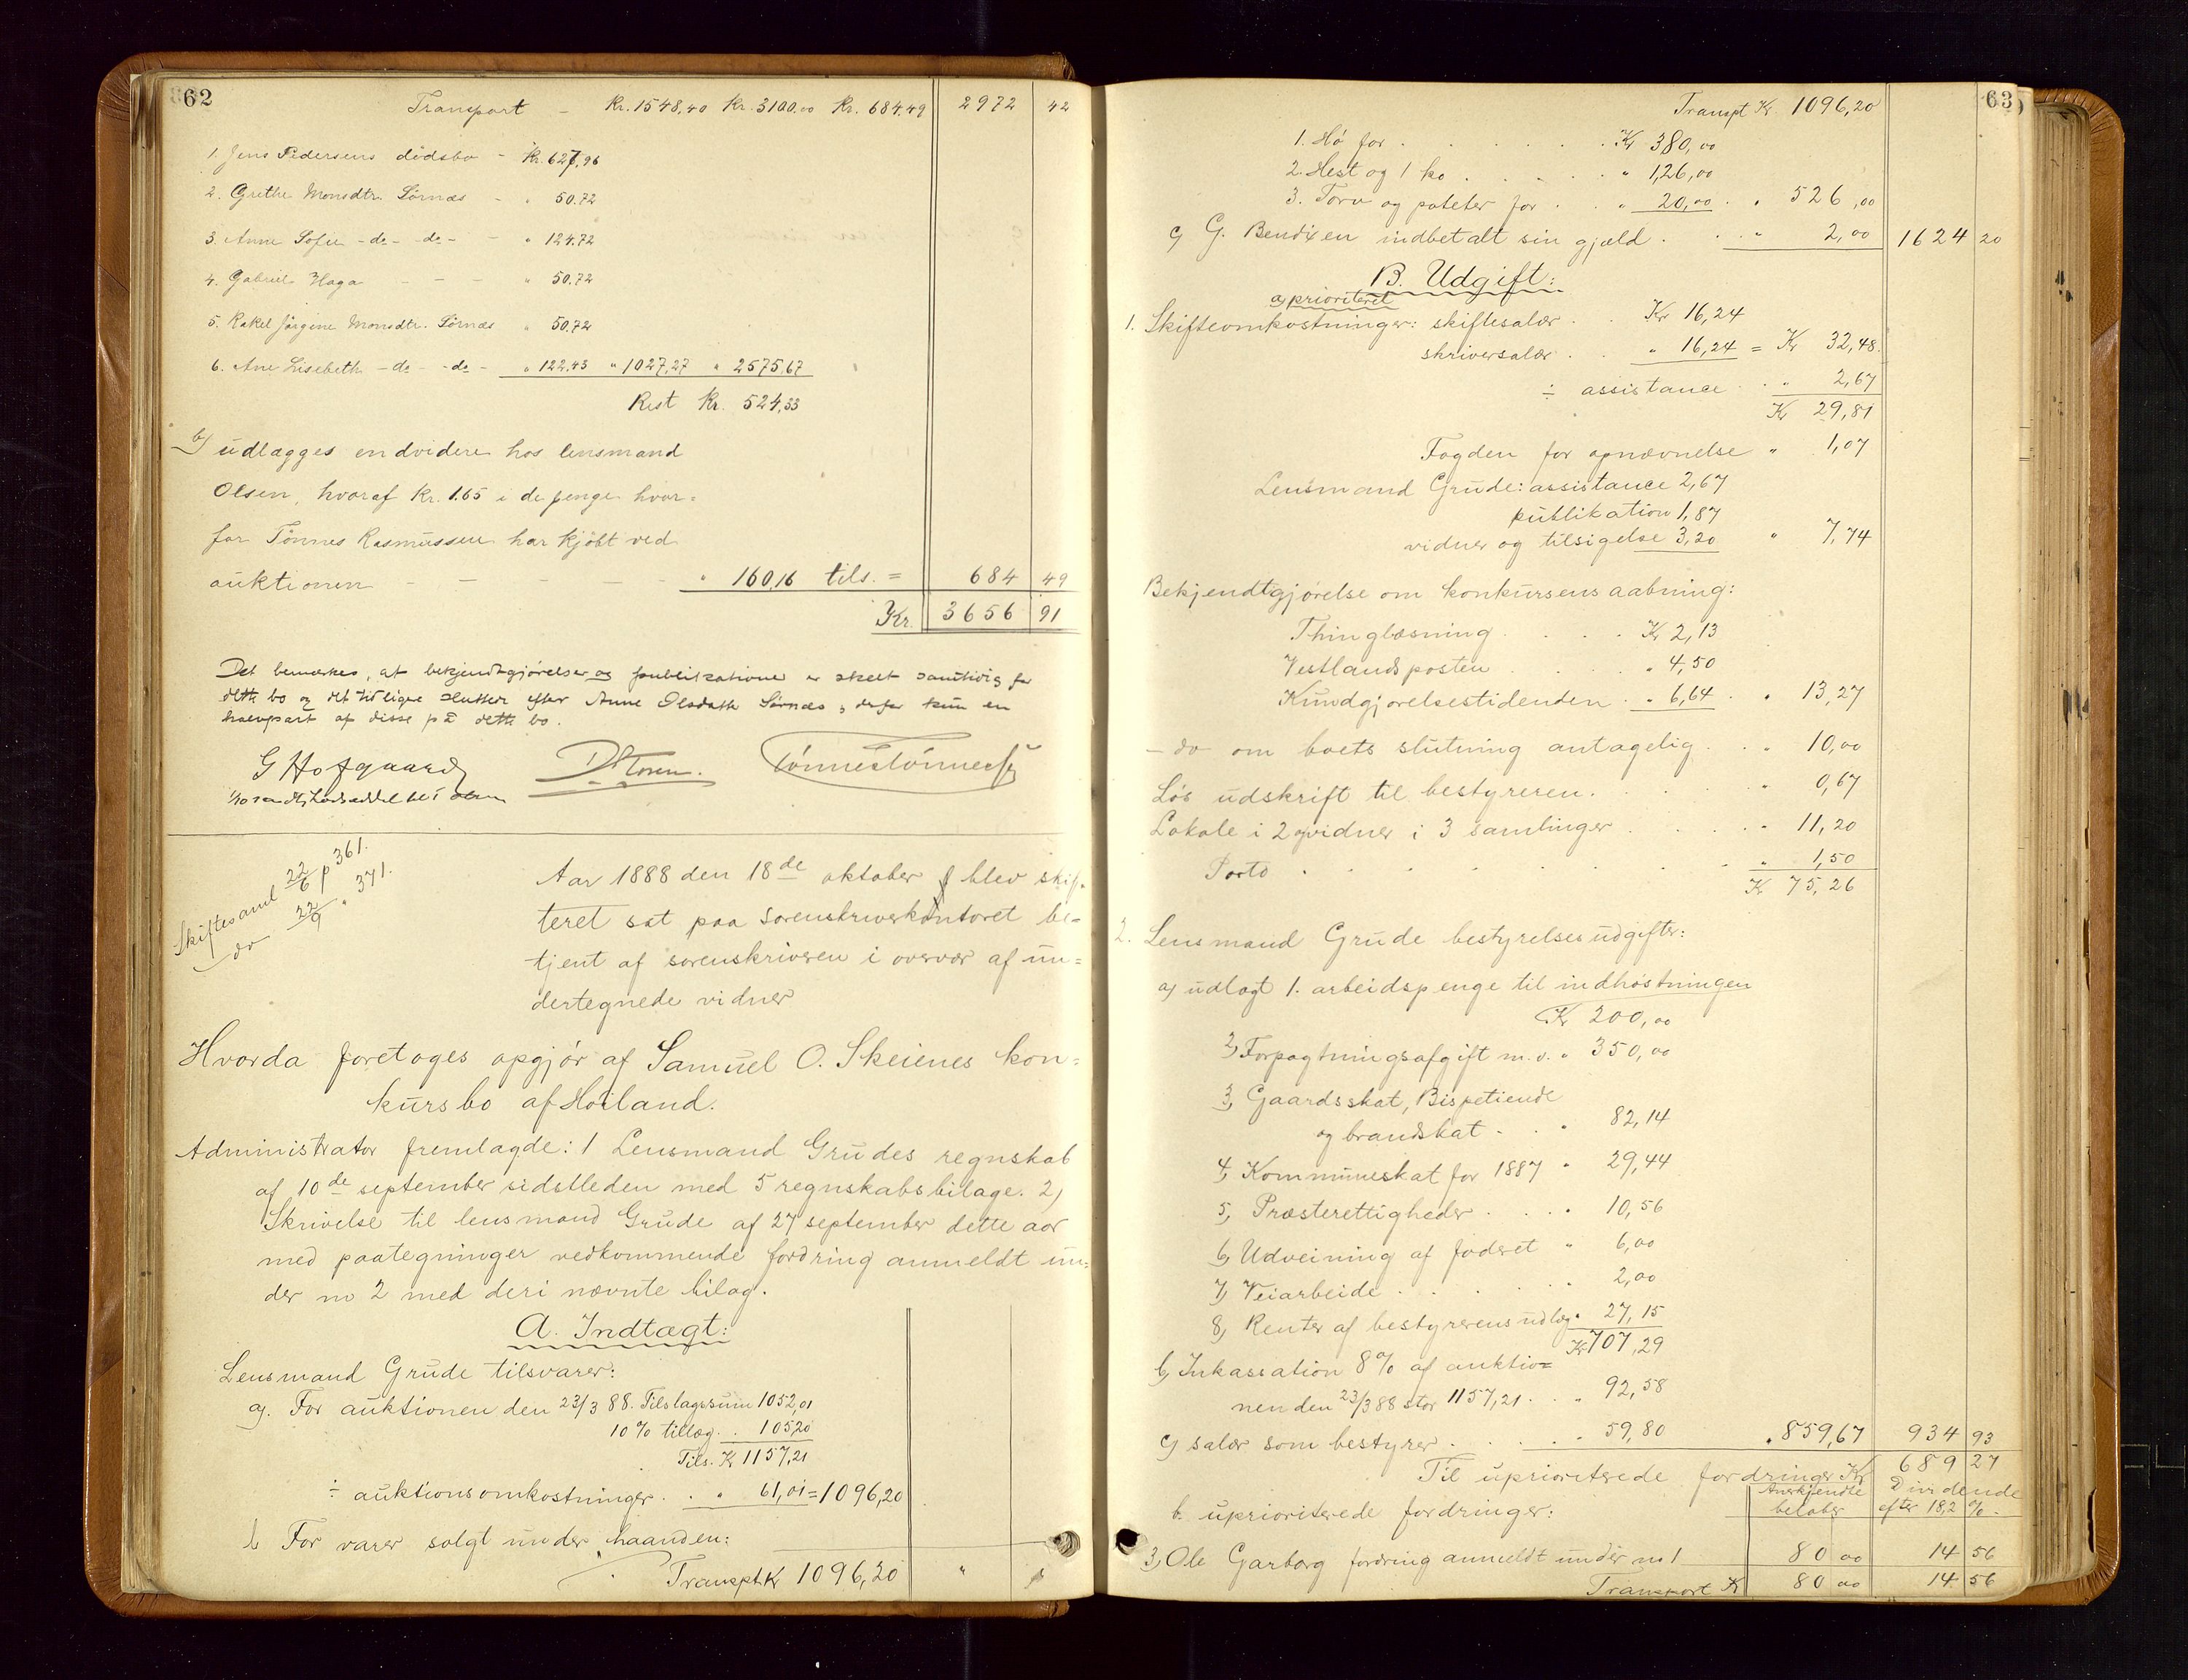 62
Transport - Kr. 1548,40 Kr. 3100.00 Kr. 684.49 2972 42
1. Jens Pedersens dødsbo - Kr. 627,96
2. Grethe Monsdtr. Sørnæs - " 50.72
3. Anne Sofie - do - do - - " 124.72
4. Gabriel Haga - - - " 50.72
5. Rakel Jørgine Monsdtr. Sørnæs " 50.72
6. Ane Lisebeth - do - do - " 122.43 " 1027,27 " 2575,67
Rest Kr. 524,33
b) udlægges endvidere hos lensmand
Olsen, hvoraf Kr. 1.65 i de penge hvor=
for Tønnes Rasmussen har kjøbt ved
auktionen - - - - " 160,16 tils. = 684 49
Kr. 3656 91
Det bemærkes, at bekjendtgjørelser og publikationer er skeet samtidig for
dette bo og det tidligere sluttede efter Anne Olsdatter Sørnæs, derfor kun en
halvpart af disse på dette bo.
G Hofgaard
Tønnes Tønnesen
Skiftesaml 22/6 p 361.
do 22/9 " 371.
Aar 1888 den 18de oktober blev skif=
teret sat paa sorenskriverkontoret be=
tjent af sorenskriveren i overvær af un=
dertegnede vidner
Hvorda foretoges opgjør af Samuel O. Skeienes kon=
kursbo af Høiland.
Administrator fremlagde: 1 Lensmand Grudes regnskab
af 10de september sidstleden med 5 regnskabsbilage. 2)
Skrivelse til lensmand Grude af 27 september dette aar
med paategninger vedkommende fordring anmeldt un=
der no 2 med deri nævnte bilag.
A. Indtægt:
Lensmand Grude tilsvarer:
a). For auktionen den 23/3 88. Tilslagssum 1052,01
10 % tillæg . . 105,20
Tils. Kr 1157,21
÷ auktionsomkostninger . . " 61,01 = 1096,20
b For varer solgt under haanden:
Transpt Kr 1096,20 "
63
Transpt Kr 1096,20
1. Hø for . . . . . . Kr 380,00
2. Hest og 1 ko . . . . . " 126,00
3. Torv og poteter for . . " 20,00 . " 526,00
c) G. Bendixen indbetalt sin gjæld . . . " 2,00 1624 20
B. Udgift:
a) prioriteret
1. Skifteomkostninger: skiftesalær . . Kr 16,24
skriversalær . . " 16,24 = Kr 32,48.
÷ assistance . . " 2,67
Kr 29,81
Fogden for opnævnelse " 1,07
Lensmand Grude: assistance 2,67
publikation 1,87
vidner og tilsigelse 3,20 " 7,74
Bekjendtgjørelse om konkursens aabning:
Thinglæsning . . . . Kr 2,13
Vestlandsposten . . . " 4,50
Kundgjørelsestidenden . " 6,64 . " 13,27
- do om boets slutning antagelig . . " 10,00
Løs udskrift til bestyreren . . . . " 0,67
Lokale i 2 og vidner i 3 samlinger . . . . " 11,20
Porto . . . . . . . " 1,50
Kr 75,26
2. Lensmand Grude bestyrelsesudgifter:
a) udlagt 1. arbeidspenge til indhøstningen
Kr 200,00
2) Forpagtningsafgift m.v. " 350,00
3) Gaardsskat, Bispetiende
og brandskat . . " 82,14
4) Kommuneskat for 1887 " 29,44
5) Præsterettigheder . . . . 10,56
6) Udveining af foderet " 6,00
7) Veiarbeide . . . . . " 2,00
8) Renter af bestyrerens udlæg " 27,15
Kr 707,29
b) Inkassation 8 % af auktio=
nen den 23/3 88 stor 1157,21 . . " 92,58
c) salær som bestyrer . . . . " 59,80 " 859,67 934 93
Til uprioriterede fordringer Kr 689 27
b. uprioriterede fordringer: Anerkjendte beløber Dividende efter 18,2 %.
3) Ole Garborg fordring anmeldt under no 1 80 00 14 56
Transport Kr 80 00 14 56